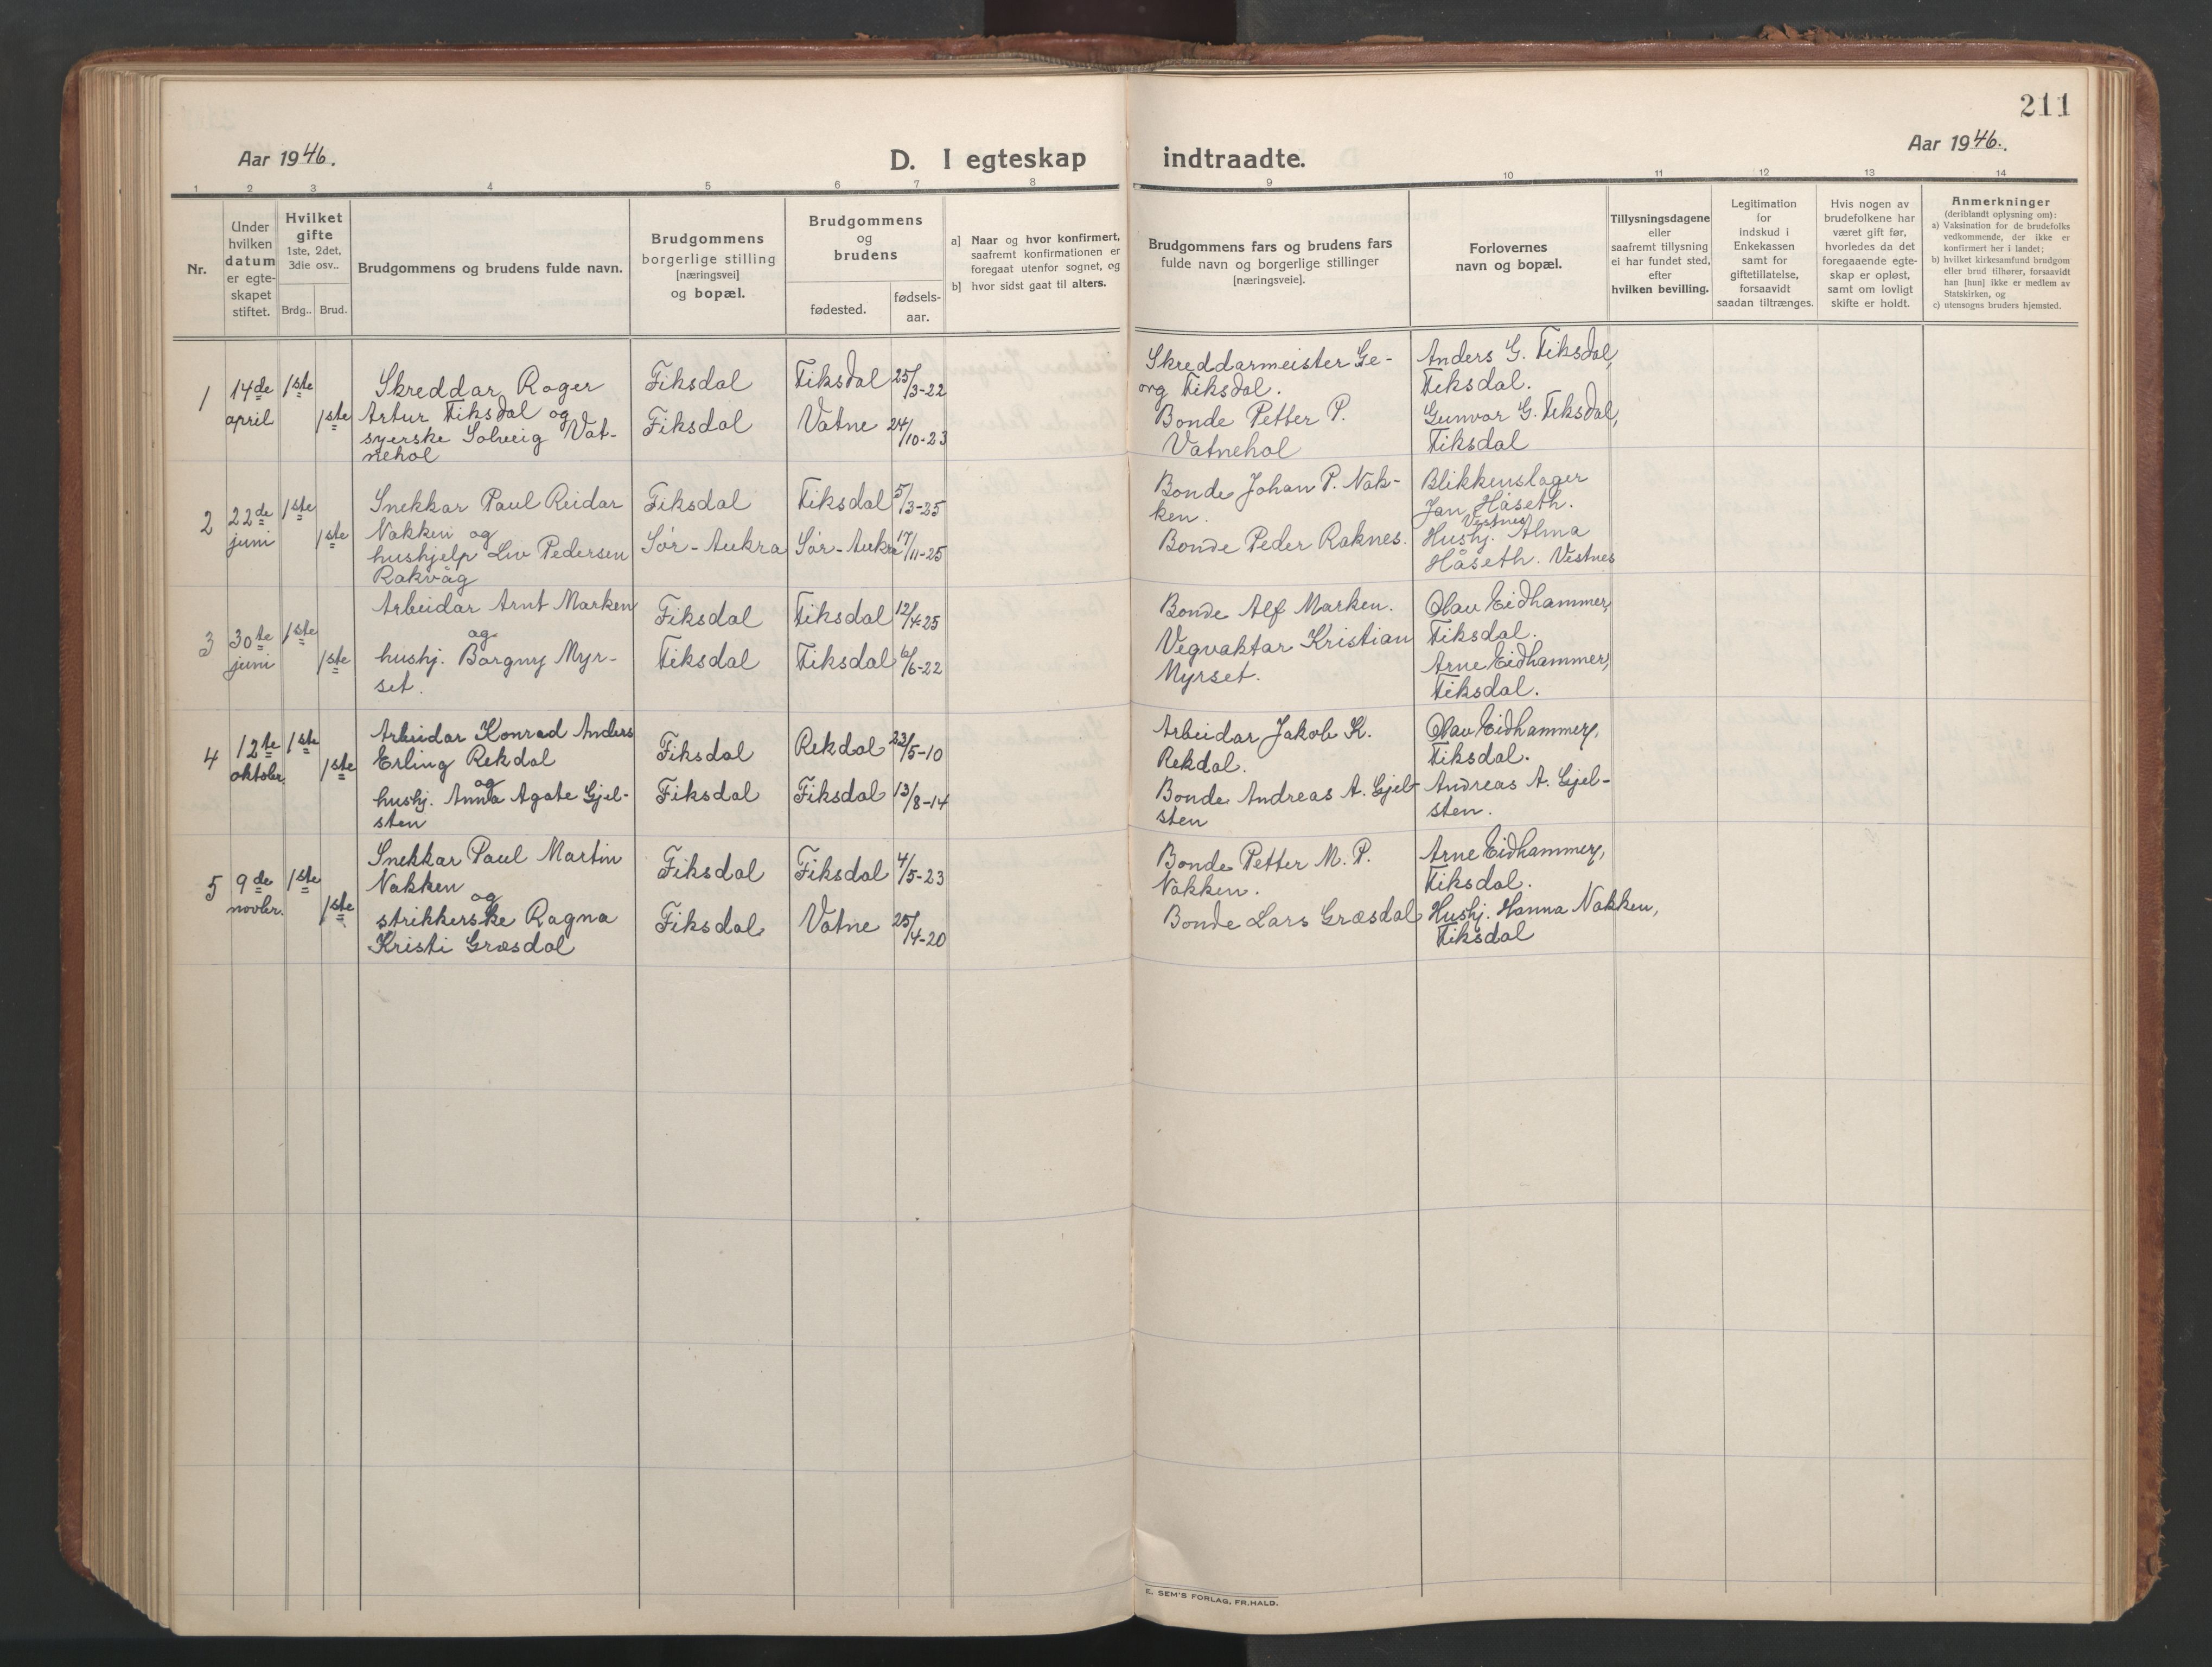 211
Aar 1946.
D. I egteskap indtraadte.
Aar 1946.
1 2 3 4 5 6 7 8 9 10 11 12 13 14
Nr.
Under
hvilken
datum
er egte-
skapet
stiftet.
Hvilket
gifte
1ste, 2det,
3die osv..
Brdg.. Brud.
Brudgommens og brudens fulde navn.
Brudgommens
borgerlige stilling
[næringsvei]
og bopæl.
Brudgommens
og
brudens
fødested.
fødsels-
aar.
a] Naar og hvor konfirmert,
saafremt konfirmationen er
foregaat utenfor sognet, og
b] hvor sidst gaat til alters.
Brudgommens fars og brudens fars
fulde navn og borgerlige stillinger
[næringsveie].
Forlovernes
navn og bopæl.
Tillysningsdagene
eller
saafremt tillysning
ei har fundet sted,
efter
hvilken bevilling.
Legitimation
for
indskud i
Enkekassen
samt for
giftetillatelse,
forsaavidt
saadan tiltrænges.
Hvis nogen av
brudefolkene har
været gift før,
hvorledes da det
foregaaende egte-
skap er opløst,
samt om lovligt
skifte er holdt.
Anmerkninger
(deriblandt oplysning om):
a) Vaksination for de brudefolks
vedkommende, der ikke er
konfirmert her i landet;
b) hvilket kirkesamfund brudgom
eller brud tilhører, forsaavidt
han [hun] ikke er medlem av
Statskirken, og
c) utensogns bruders hjemsted.
1
14de
april
1ste
1ste
Skreddar Roger
Artur Fiksdal og
syerske Solveig Vat-
nehol
Fiksdal
Fiksdal
Fiksdal
Vatne
25/3-22
24/10-23
Skreddarmeister Ge-
org Fiksdal.
Bonde Petter P.
Vatnehol
Anders G. Fiksdal,
Fiksdal.
Gunvor G. Fiksdal,
Fiksdal
2
22de
juni
1ste
1ste
Snekkar Paul Reidar
Nakken og
hushjelp Liv Pedersen
Rakvåg
Fiksdal
Sør-Aukra
Fiksdal
Sør-Aukra
5/3-25
17/11-25
Bonde Johan P. Nak-
ken.
Bonde Peder Raknes.
Blikkenslager
Jan Håseth.
Vestnes
Hushj. Alma
Håseth. Vestnes
3
30te
juni
1ste
1ste
Arbeidar Arnt Marken
og
hushj. Borgny Myr-
set.
Fiksdal
Fiksdal
Fiksdal
Fiksdal
12/4-25
6/6-22
Bonde Alf Marken.
Vegvaktar Kristian
Myrset.
Olav Eidhammer,
Fiksdal.
Arne Eidhammer,
Fiksdal.
4
12te
oktober
1ste
1ste
Arbeidar Konrad Anders
Erling Rekdal
og
hushj. Anna Agate Gjel-
sten
Fiksdal
Fiksdal
Rekdal
Fiksdal
23/5-10
13/8-14
Arbeidar Jakob K.
Rekdal.
Bonde Andreas A. Gjel-
sten
Olav Eidhammer,
Fiksdal.
Andreas A. Gjel-
sten.
5
9de
novbr.
1ste
1ste
Snekkar Paul Martin
Nakken
og
strikkerske Ragna
Kristi Græsdal
Fiksdal
Fiksdal
Fiksdal
Vatne
4/5-23
25/4-20
Bonde Petter M. P.
Nakken.
Bonde Lars Græsdal
Arne Eidhammer,
Fiksdal.
Hushj. Hanna Nakken,
Fiksdal
E. SEM'S FORLAG, FR.HALD.